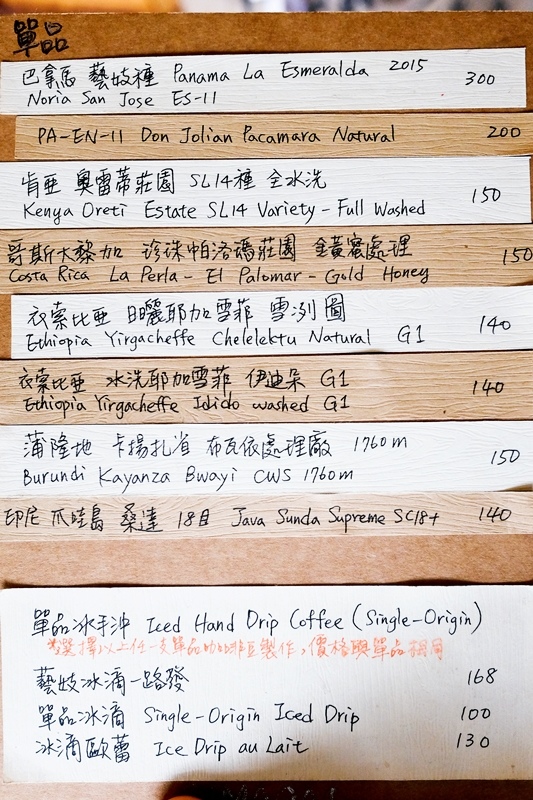 單品
巴拿馬 藝妓種 Panama La Esmeralda 2015 300
Noria San Jose ES-11
PA-EN-11 Don Jolian Pacamara Natural 200
肯亞 奧雷蒂莊園 SL14種 全水洗 150
Kenya Oreti Estate SL14 Variety - Full Washed
哥斯大黎加 珍珠帕洛瑪莊園 金黃蜜處理 150
Costa Rica La Perla - El Palomar - Gold Honey
衣索比亞 日曬耶加雪菲 雪冽圖 140
Ethiopia Yirgacheffe Chelelektu Natural G1
衣索比亞 水洗耶加雪菲 伊迪朵 G1 140
Ethiopia Yirgacheffe Idido washed G1
蒲隆地 卡揚扎省 布瓦依處理廠 1760m 150
Burundi Kayanza Bwayi CWS 1760m
印尼 爪哇島 桑達 18目 Java Sunda Supreme SC18+ 140
單品冰手沖 Iced Hand Drip Coffee (Single-Origin)
選擇以上任一支單品咖啡豆製作,價格與單品相同
藝妓冰滴一路發 168
單品冰滴 Single-Origin Iced Drip 100
冰滴歐蕾 Ice Drip au Lait 130